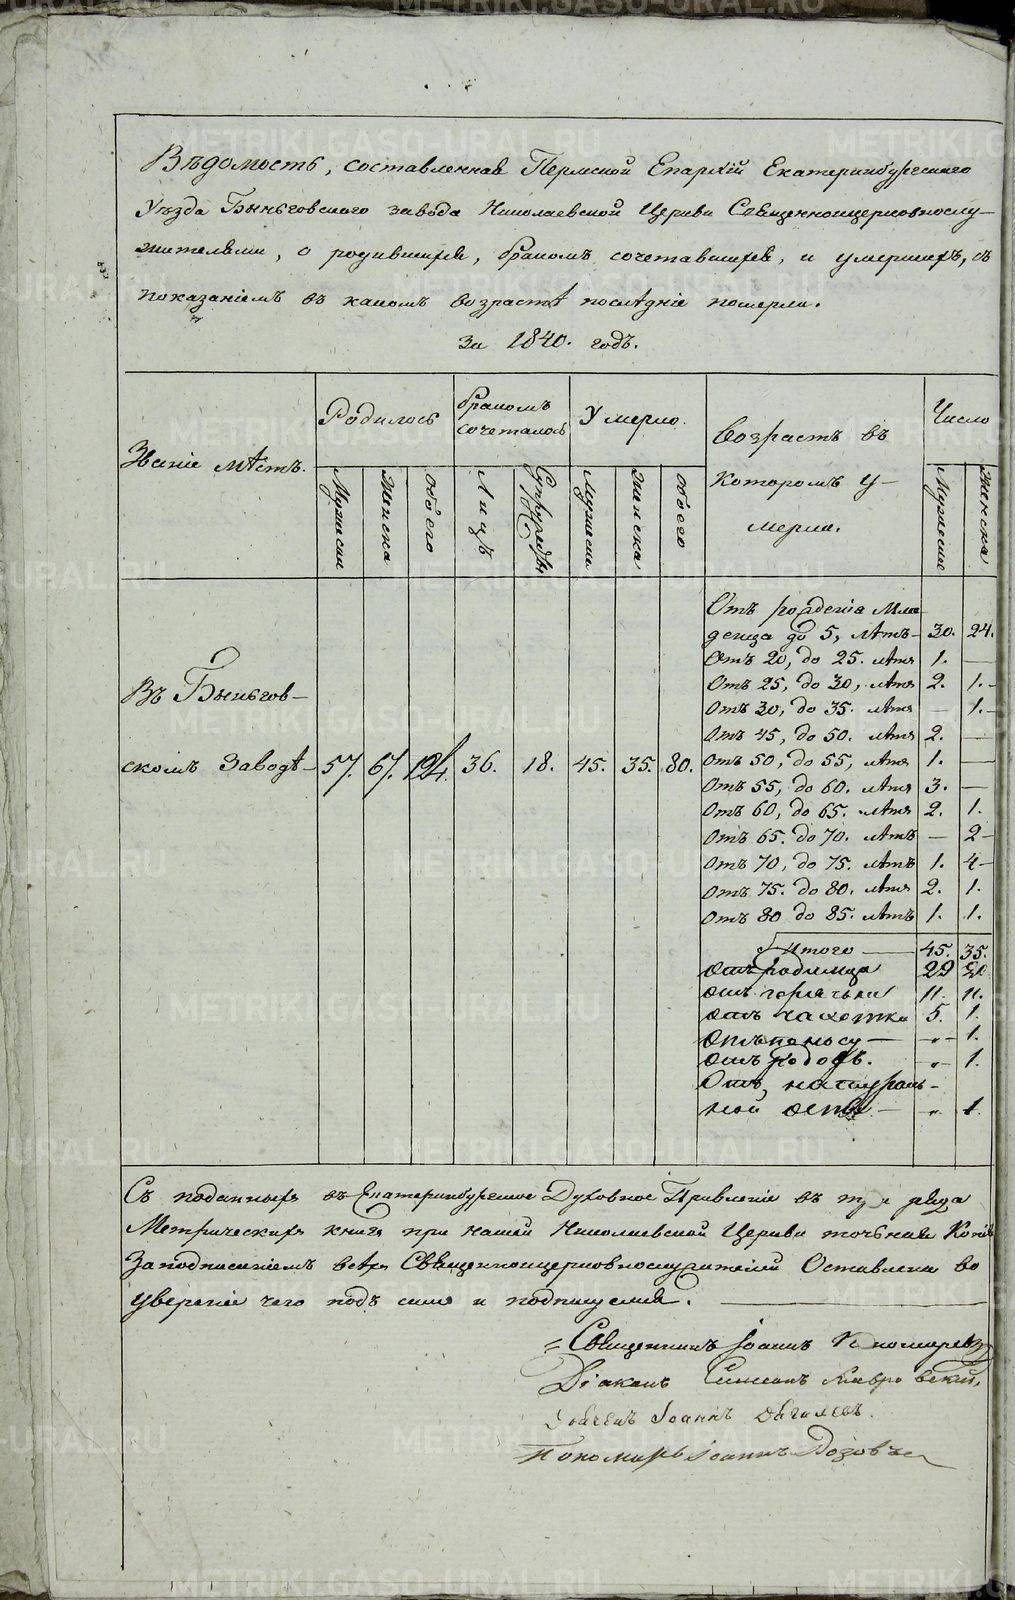 Вѣдомость, составленная Пермской Епархіи Екатеринбургскаго
Уѣзда Быньговскаго завода Николаевской Церкви Священноцерковнослу-
жителями, о родившихся, бракомъ сочетавшихся, и умершихъ, съ
показаніемъ въ какомъ возрастѣ послѣдніе померли.
За 1840. годъ.
Званіе мѣстъ.
Родилось
бракомъ сочеталось
Умерло.
Возрастъ въ
которомъ у-
мерли.
Число
Мужеска
Женска
обоего
Лицъ
Супружествъ
Мужеска
Женска
обоего
Мужеска
Женска
Въ Быньгов-
скомъ Заводѣ- 57. 67. 124. 36. 18. 45. 35. 80.
Отъ рожденія мла-
денца до 5, лѣтъ- 30. 24.
Отъ 20, до 25. лѣтъ 1. —
Отъ 25, до 30, лѣтъ 2. 1.-
Отъ 30, до 35. лѣтъ — 1.-
Отъ 45, до 50. лѣтъ 2. —
Отъ 50, до 55, лѣтъ 1. —
Отъ 55, до 60. лѣтъ 3. —
Отъ 60, до 65. лѣтъ 2. 1.
Отъ 65. до 70. лѣтъ — 2-
Отъ 70, до 75. лѣтъ 1. 4-
Отъ 75. до 80. лѣтъ 2. 1.
Отъ 80 до 85. лѣтъ 1. 1.
Итого — 45. 35.
отъ родимца 29
отъ горячьки 11. 11.
отъ чахотки 5. 1.
отъ поносу — „- 1.
отъ родовъ. „- 1.
Отъ натураль-
ной оспы — „ 1.
Съ поданныхъ въ Екатеринбургское Духовное Правленіе въ
Метрическихъ книгъ при нашей Николаевской Церкви точьная Копія
За подписаніемъ всѣхъ Священноцерковнослужителей Оставлена во
увереніе чего подъ симъ и подписуемся. —
Священникъ Іоаннъ Пономаревъ
Діаконъ Симеонъ
Іоаннъ
Пономарь Іоаннъ
METRIKI.GASO-URAL.RU